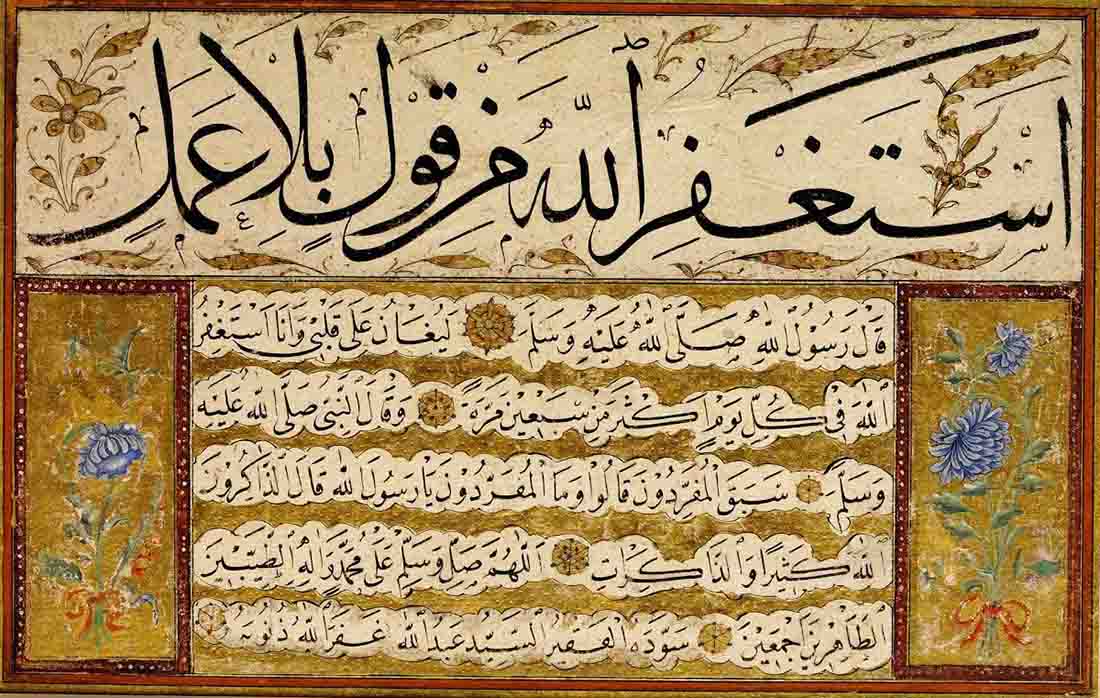 استغفر الله من قول بلا عمل
قَالَ رَسُولُ اللهِ صَلَّى اللهُ عَلَيْهِ وَسَلَّمَ لَيُغَانُ عَلَى قَلْبِي وَأَنَا أَسْتَغْفِرُ
اللهَ فِي كُلِّ يَوْمٍ أَكْثَرَ مِنْ سَبْعِينَ مَرَّةً وَقَالَ النَّبِيُّ صَلَّى اللهُ عَلَيْهِ
وَسَلَّمَ سَبَقَ المُفَرِّدُونَ قَالُوا وَمَا المُفَرِّدُونَ يَا رَسُولَ اللهِ قَالَ الذَّاكِرُونَ
اللهَ كَثِيرًا وَالذَّاكِرَاتِ اللَّهُمَّ صَلِّ وَسَلِّمْ عَلَى مُحَمَّدٍ وَآلِهِ الطَّيِّبِينَ
الطَّاهِرِينَ أَجْمَعِينَ سَوَّدَهُ الفَقِيرُ السَّيِّدُ عَبْدُ اللهِ غَفَرَ اللهُ ذُنُوبَهُ